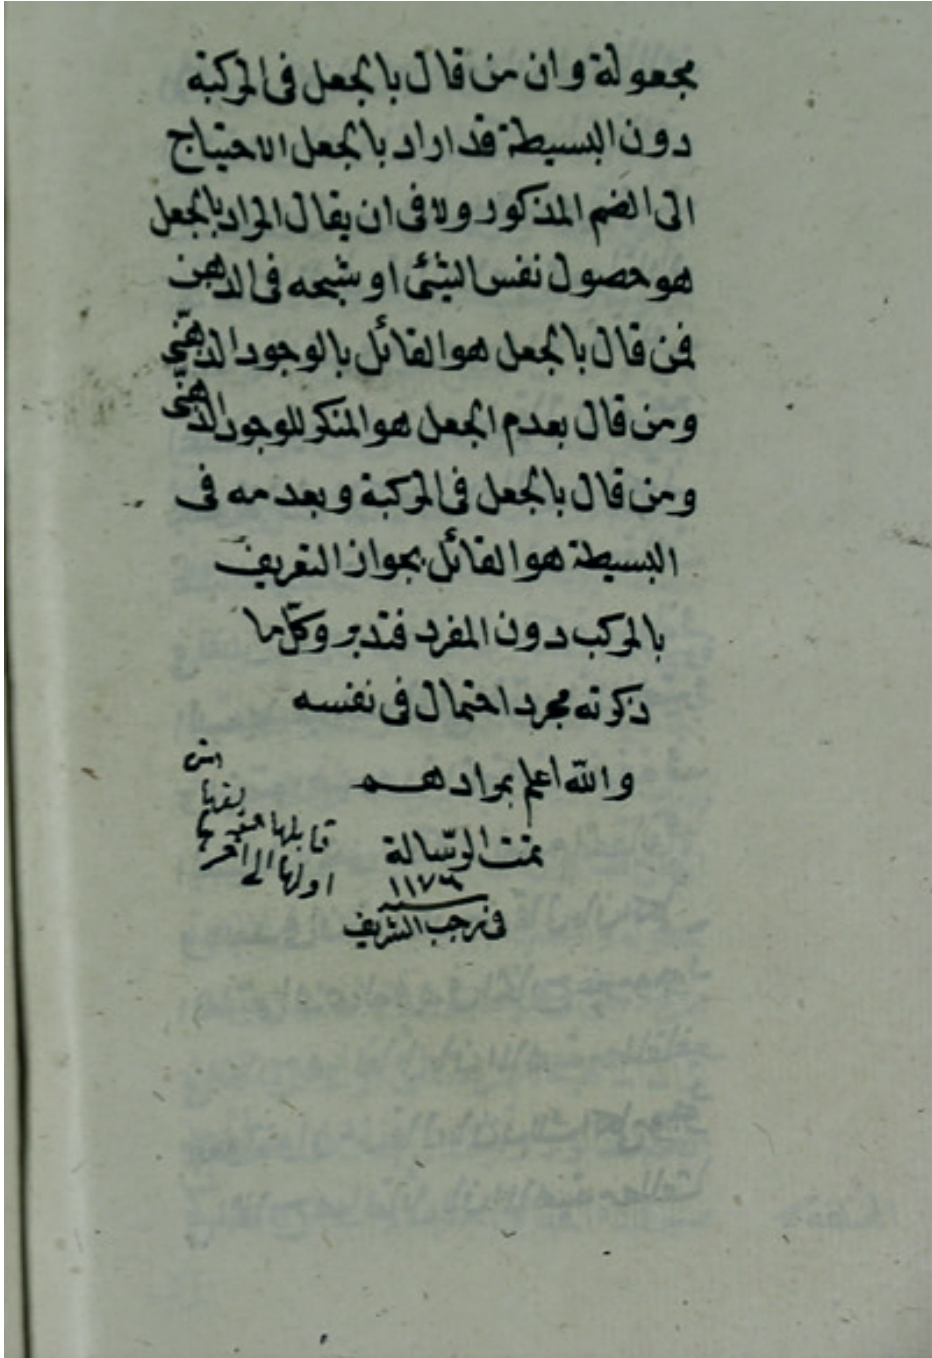 مجعولة وان من قال بالجعل فى المركبة
دون البسيطة قد اراد بالجعل الاحتياج
الى الضم المذكور ولا فى ان يقال المراد بالجعل
هو حصول نفس الشئ او شبحه فى الذهن
فمن قال بالجعل هو القائل بالوجود الذهنّى
ومن قال بعدم الجعل هو المنكر للوجود الذهنّى
ومن قال بالجعل فى المركبة وبعدمه فى
البسيطة هو القائل بجواز التعريف
بالمركب دون المفرد فتدبر وكلّ ما
ذكرته مجرد احتمال فى نفسه
والله اعلم بمرادهم
تمت الرسّالة
١١٧٦
سنه
فى رجب الشريف
قابلها من
اولها الى اخرها